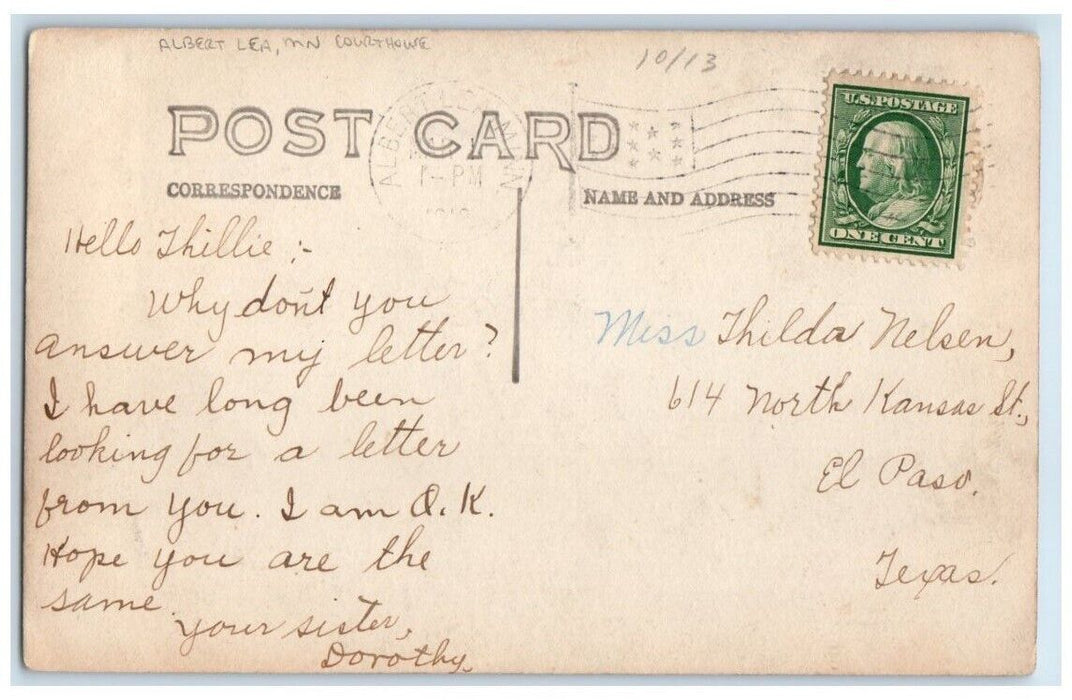 ALBERT LEA, MN COURTHOUSE
10/13
POST CARD
ALBERT LEA MINN
1-PM
U.S. POSTAGE
ONE CENT
CORRESPONDENCE
NAME AND ADDRESS
Hello Thillie :-
Why don't you
answer my letter?
I have long been
looking for a letter
from you. I am O.K.
Hope you are the
same.
your sister,
Dorothy.
Miss Thilda Nelsen,
614 North Kansas St.,
El Paso.
Texas.